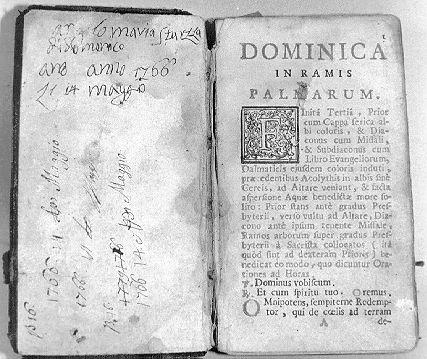 anto maria sturza
di domenico
ano anno 1766
li 14 maggio
1766 14 Maggio
1
DOMINICA
IN RAMIS
PALMARUM.
FInitâ Tertiâ, Prior
cum Cappa serica al-
bi coloris, & Dia-
conus cum Missali,
& Subdiaconus cum
Libro Evangeliorum,
Dalmaticis ejusdem coloris induti,
præcedentibus Acolythis in albis sinè
Cereis, ad Altare veniant, & facta
aspersione Aquæ benedictæ more so-
lito: Prior stans antè gradus Pres-
byterii, verso vultu ad Altare, Dia-
cono antè ipsum tenente Missale,
Ramos arborum super gradus Pres-
byterii à Sacrista collocatos (ità
quòd sint ad dexteram Prioris) be-
nedicat eo modo, quo dicuntur Ora-
tiones ad Horas.
℣. Dominus vobiscum.
℟. Et cum spiritu tuo. Oremus.
OMnipotens, sempiterne Redemp-
tor, qui de cœlis ad terram
A de-